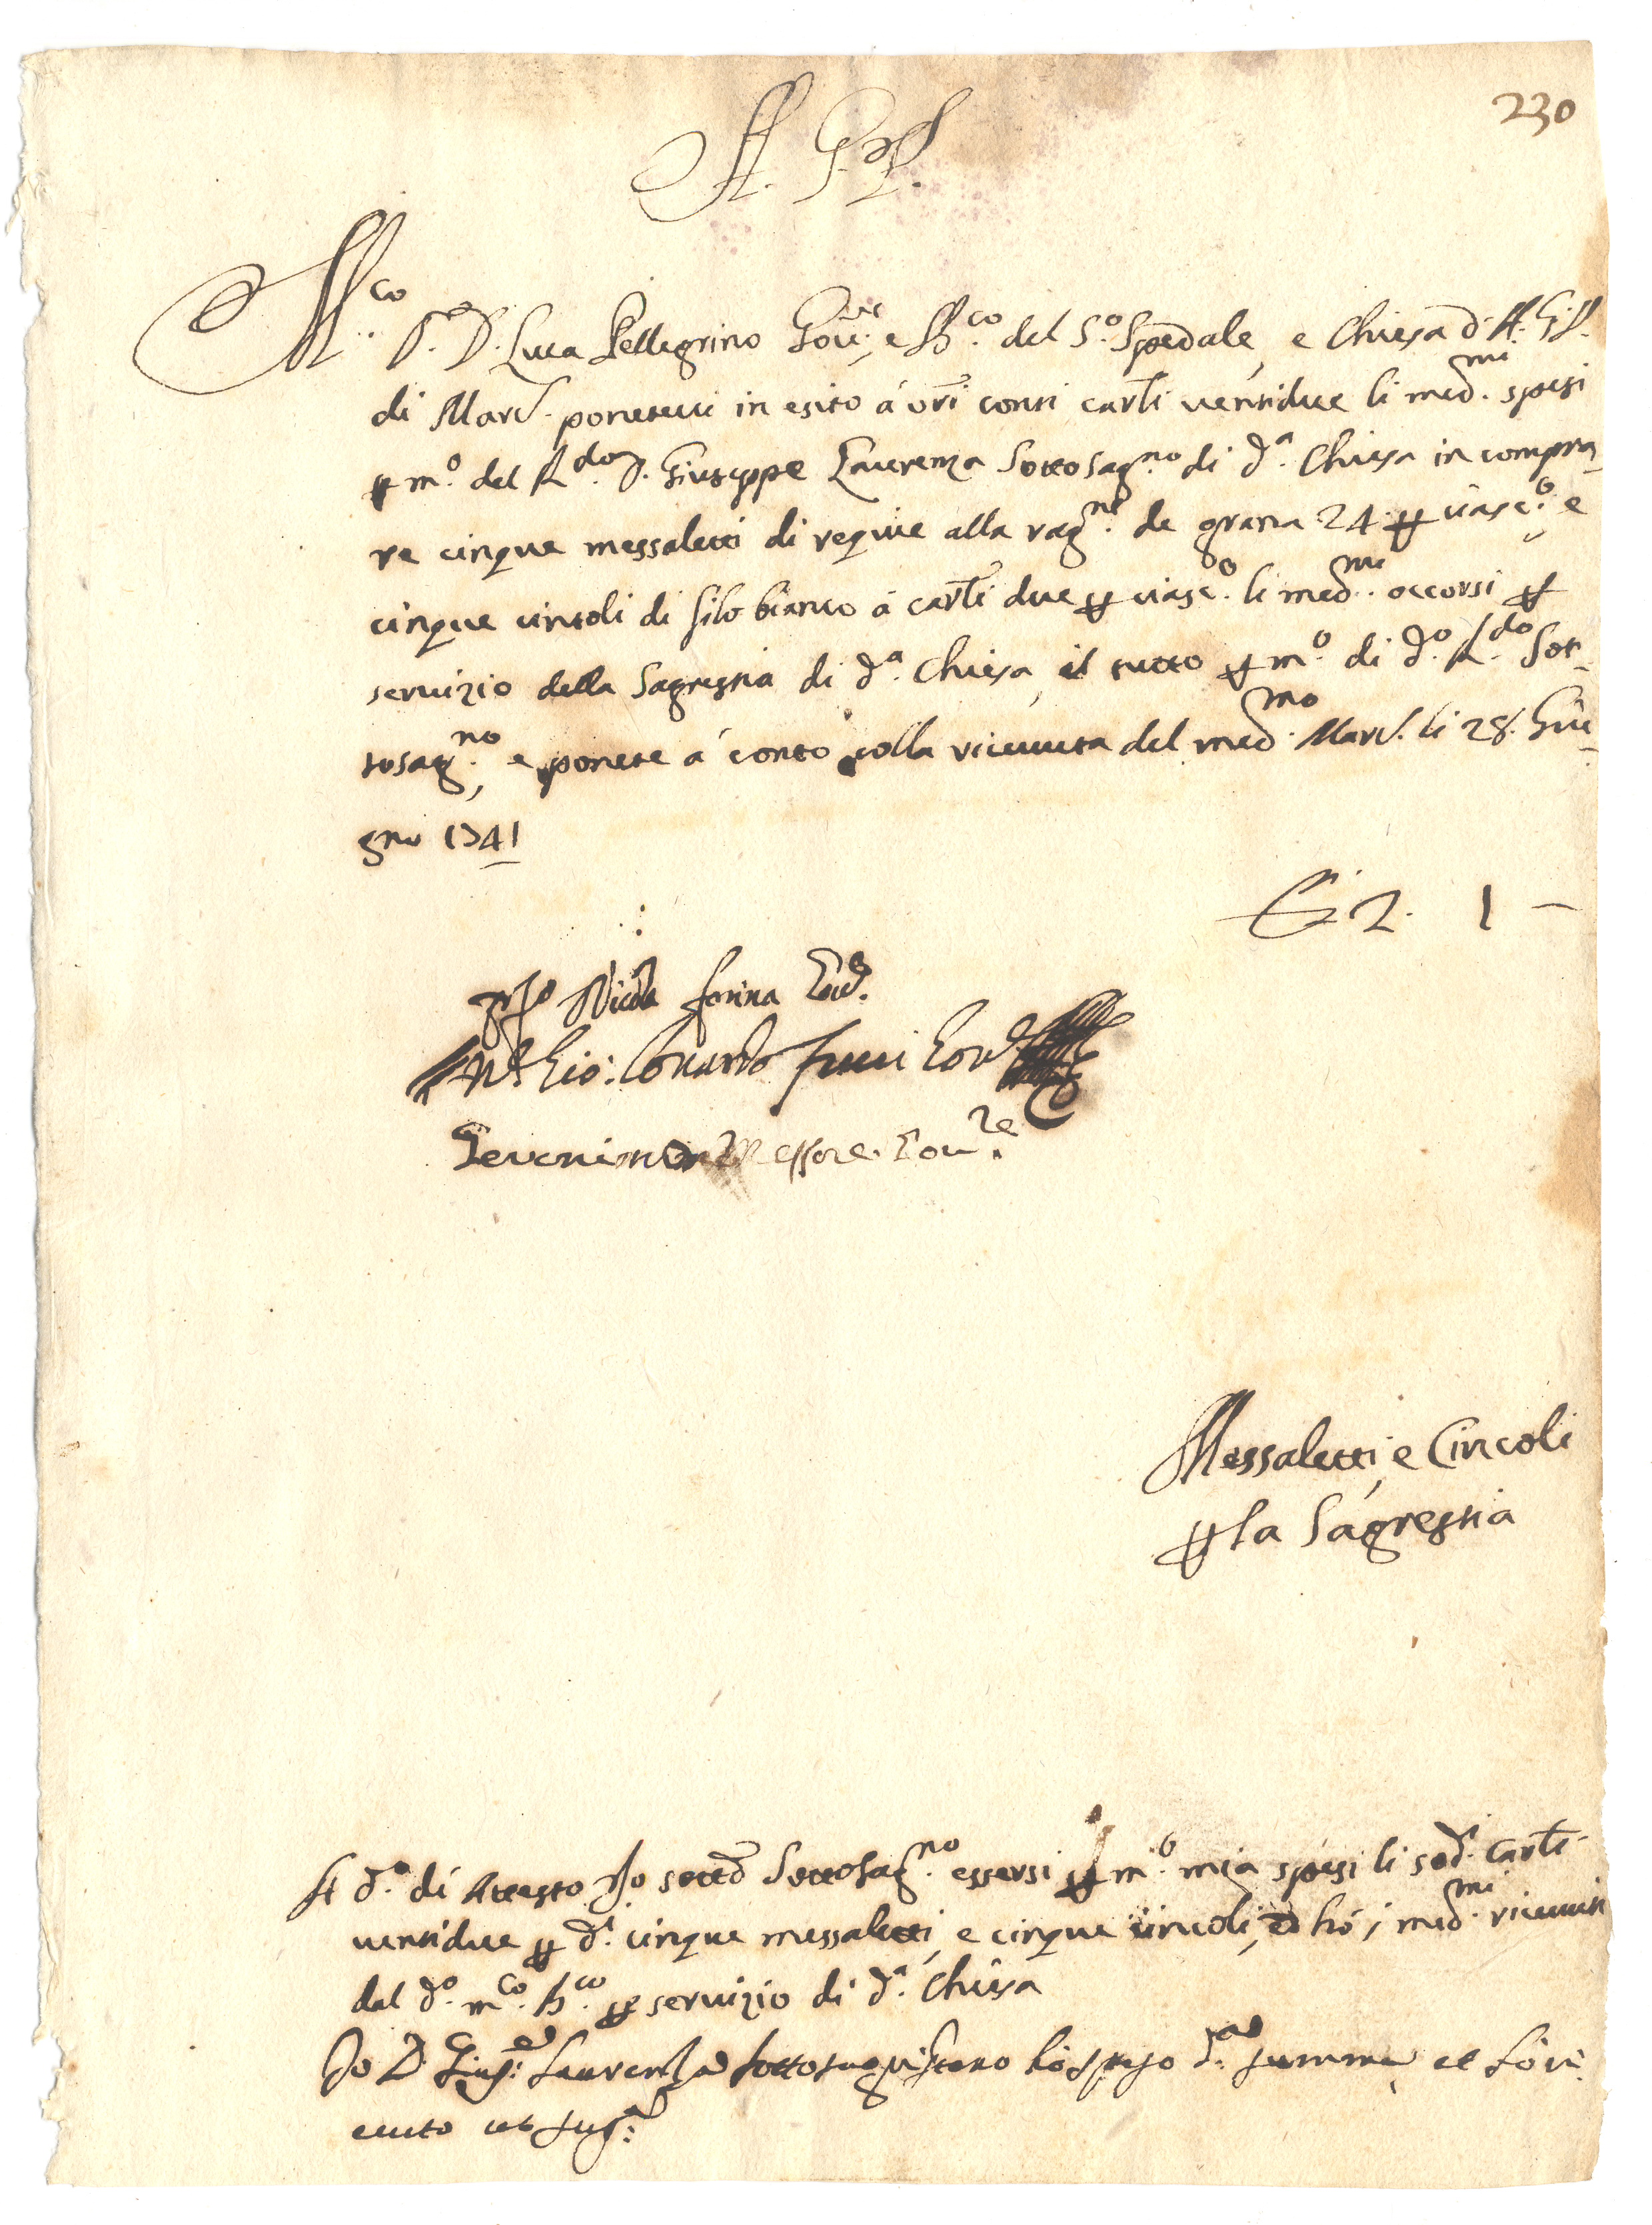 230
A. G. P.
M.co S.r D. Luca Pellegrino Gov.re, e B.co del S.o Spedale, e Chiesa d' A. G. P.
di Mard. ponetevi in esito á vr̃i conti carl̃i ventidue li med.mi spesi
ꝑ m.o del R.do D. Giuseppe Laurenza Sottosag.no di d.a Chiesa in compra
re cinque messaletti di requie alla rag.ne de grana 24 ꝑ ciasc.o, e
cinque cincoli di filo bianco á carl̃i due ꝑ ciasc.o li med.mi occorsi ꝑ
servizio della Sagrestia di d.a Chiesa, il tutto ꝑ m.o di d.o R.do Sot-
tosag.no, e ponete á conto colla ricevuta del med.mo Mard. li 28. Giu-
gno 1741
2. 1 –
Nicola farina Gov.e
Gio: Gov.e
Messore Gov.re
Messaletti, e Cincoli
ꝑ la Sagrestia
A d.o di Attesto Io sotto Sottosag.no essersi ꝑ m.o mia spesi li sod.i carl̃i
ventidue ꝑ d.i cinque messaletti, e cinque cincoli, ed hó i med.mi ricevuti
dal d.o m.co B.co ꝑ servizio di d.a Chiesa
Io D. Gius.e Laurenza sottosagristano hó speso d.a summa et hó ric
euuto ut sup.a